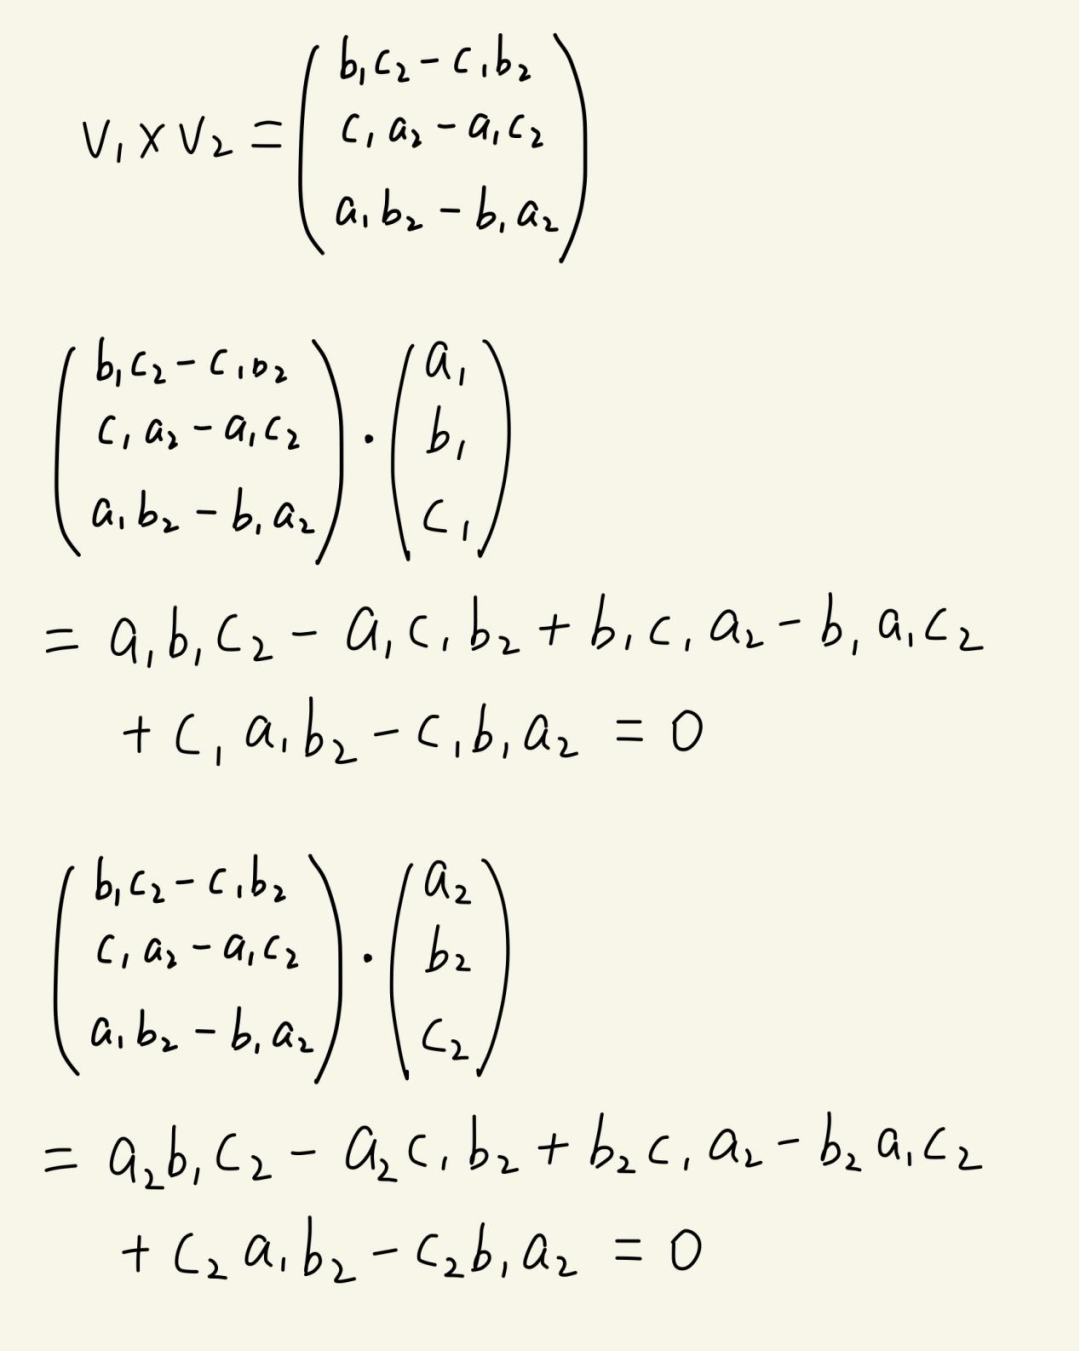 v₁ × v₂ = ( b₁c₂ - c₁b₂
c₁a₂ - a₁c₂
a₁b₂ - b₁a₂ )
( b₁c₂ - c₁b₂
c₁a₂ - a₁c₂
a₁b₂ - b₁a₂ ) · ( a₁
b₁
c₁ )
= a₁b₁c₂ - a₁c₁b₂ + b₁c₁a₂ - b₁a₁c₂
+ c₁a₁b₂ - c₁b₁a₂ = 0
( b₁c₂ - c₁b₂
c₁a₂ - a₁c₂
a₁b₂ - b₁a₂ ) · ( a₂
b₂
c₂ )
= a₂b₁c₂ - a₂c₁b₂ + b₂c₁a₂ - b₂a₁c₂
+ c₂a₁b₂ - c₂b₁a₂ = 0